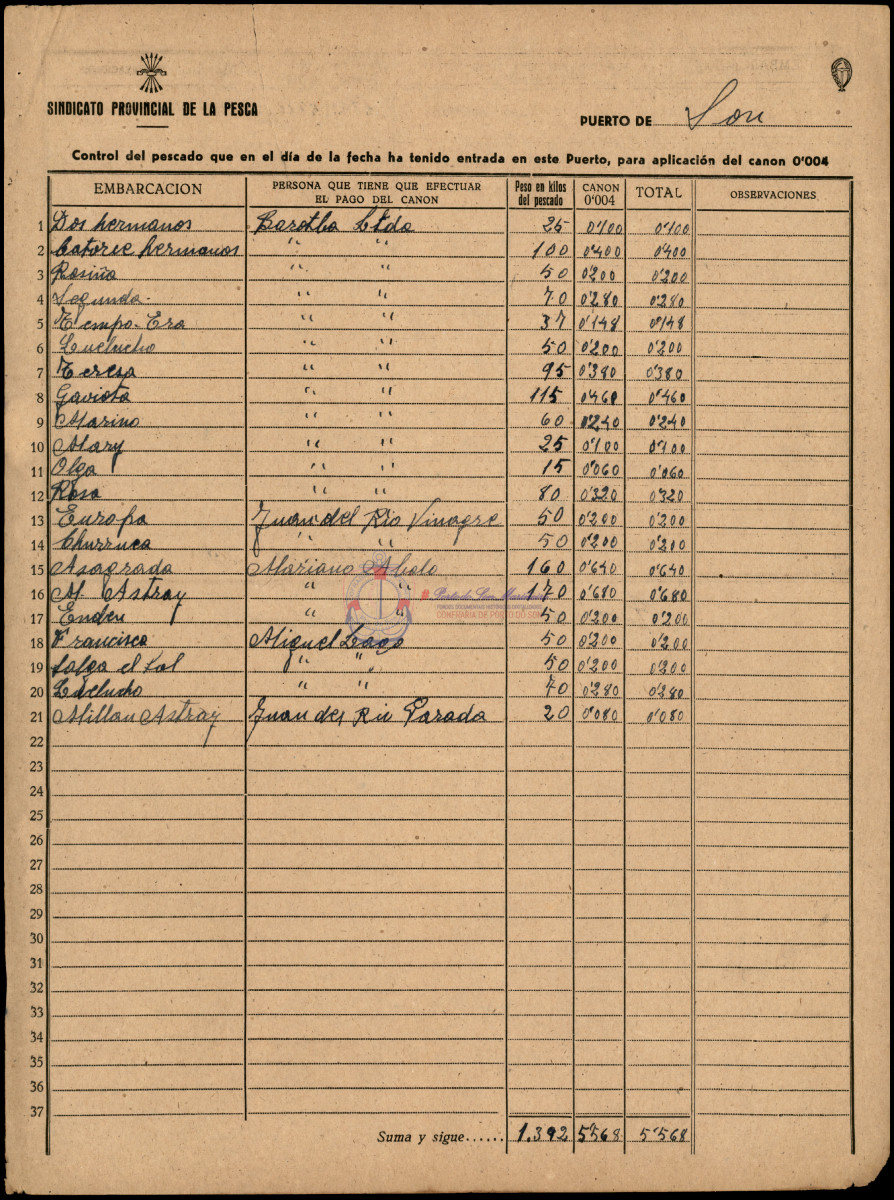 SINDICATO PROVINCIAL DE LA PESCA
PUERTO DE Son
Control del pescado que en el día de la fecha ha tenido entrada en este Puerto, para aplicación del canon 0'004
EMBARCACION PERSONA QUE TIENE QUE EFECTUAR EL PAGO DEL CANON Peso en kilos del pescado CANON 0'004 TOTAL OBSERVACIONES
1 Dos hermanos Ltda 25 0'100 0'100
2 Catorce hermanos " " 100 0'400 0'400
3 Rosiña " " 50 0'200 0'200
4 Segunda " " 70 0'280 0'280
5 Tempo-Era " " 37 0'148 0'148
6 Luclucho " " 50 0'200 0'200
7 Teresa " " 95 0'380 0'380
8 Gaviota " " 115 0'460 0'460
9 Marino " " 60 0'240 0'240
10 Mary " " 25 0'100 0'100
11 Olga " " 15 0'060 0'060
12 Rosa " " 80 0'320 0'320
13 Europa Juan del Rio Vinagre 50 0'200 0'200
14 Churruca " " 50 0'200 0'200
15 Asagrada Mariano Abolo 160 0'640 0'640
16 M. Astray " " 170 0'680 0'680
17 " " 50 0'200 0'200
18 Francisca Miguel Lago 50 0'200 0'200
19 Salga el Sol " " 50 0'200 0'200
20 Luclucho " " 70 0'280 0'280
21 Millan Astray Juan del Rio Parada 20 0'080 0'080
22
23
24
25
26
27
28
29
30
31
32
33
34
35
36
37
Suma y sigue...... 1.392 5'568 5'568
CONFRARÍA DE PORTO DO SON